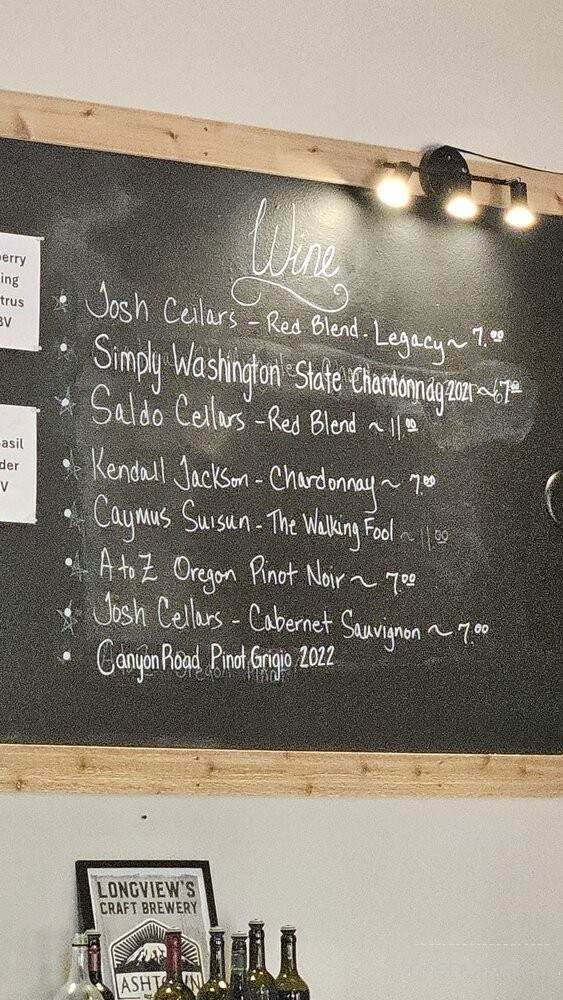 Wine
Josh Cellars - Red Blend - Legacy ~ 7.00
Simply Washington State Chardonnay 2021 ~ 7.00
Saldo Cellars - Red Blend ~ 11.00
Kendall Jackson - Chardonnay ~ 7.00
Caymus Suisun - The Walking Fool ~ 11.00
A to Z Oregon Pinot Noir ~ 7.00
Josh Cellars - Cabernet Sauvignon ~ 7.00
Canyon Road Pinot Grigio 2022
erry
ing
trus
BV
asil
der
V
LONGVIEW'S
CRAFT BREWERY
ASHTOWN